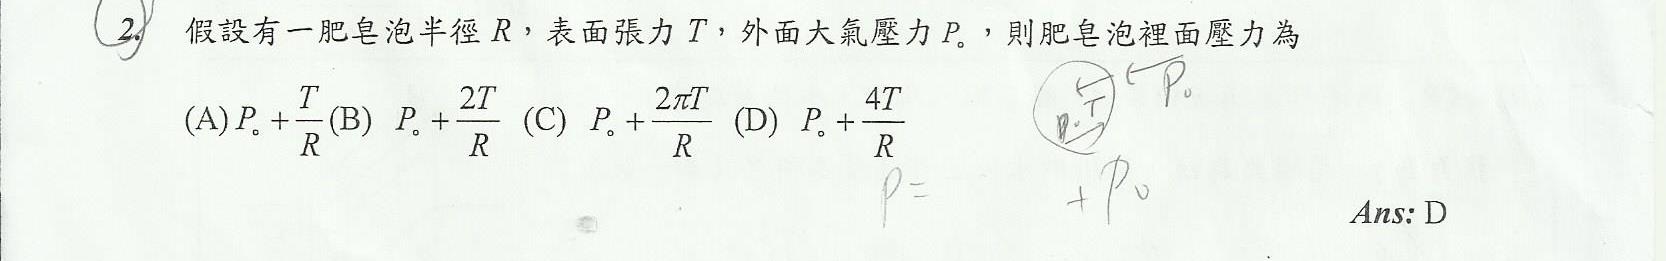 2. 假設有一肥皂泡半徑 R，表面張力 T，外面大氣壓力 P。，則肥皂泡裡面壓力為
(A) P。+ T/R (B) P。+ 2T/R (C) P。+ 2πT/R (D) P。+ 4T/R
P₀
T
P =
+ P₀
Ans: D